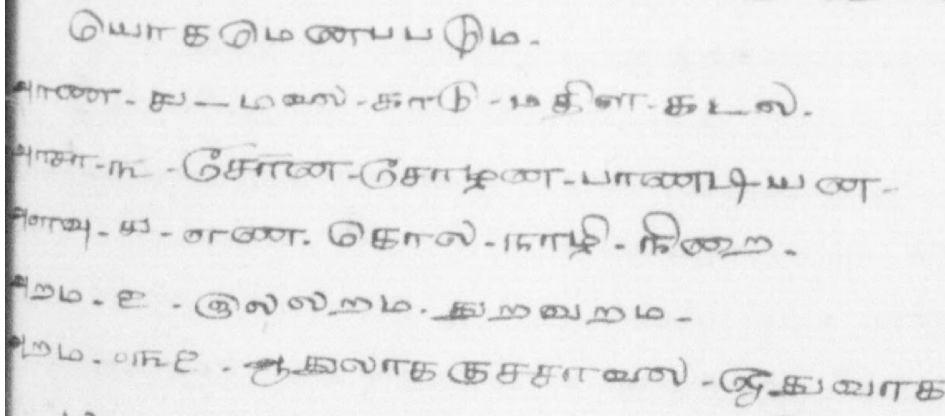 யொகமெனபபடும.
அரண - ௪ - மலை - காடு - மதிள - கடல.
அரசர - ௩ - சேரன - சொழன - பாணடியன -
அளவு - ௪ - எண. கொல - நாழி - நிறை.
அறம - ௨ - இலலறம. துறவறம -
அறம - ௩௨ - ஆதுலரககுசசாலை - ஓதுவாரக